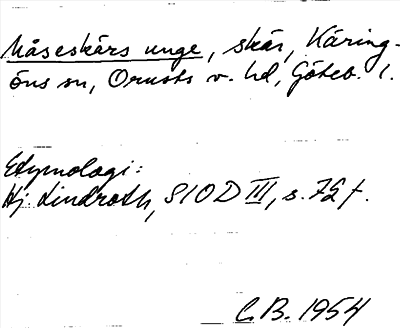 Måseskärs unge, skär, Käring-
öns sn, Orusts v. hd, Göteb. l.
Etymologi:
Hj. Lindroth, SIOD III, s. 72 f.
C.B. 1954